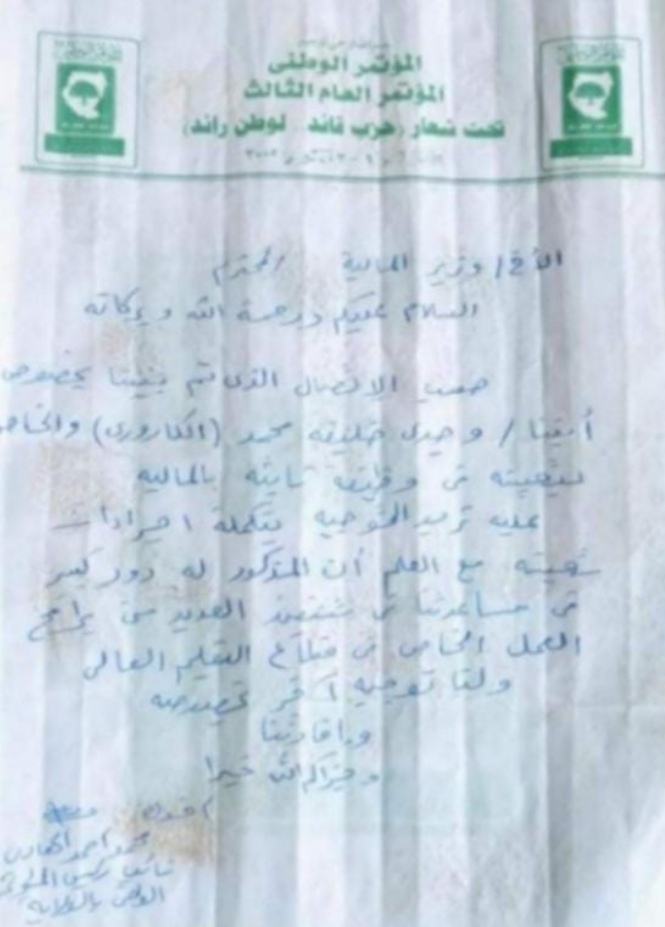 المؤتمر الوطني
المؤتمر العام الثالث
تحت شعار (حزب قائد .. لوطن رائد)
الأخ / وزير المالية المحترم
السلام عليكم ورحمة الله وبركاته
حسب الاتصال الذي تم بيننا بخصوص
أخينا / وحيدى خليفه محمد (الكارورى) والخاص
بتعيينه فى وظيفه ثابته بالماليه
عليه نريد التوجيه بتكملة اجراءات
تعيينه مع العلم أن المذكور له دور كبير
فى مساعدتنا فى تنفيذ العديد من برامج
العمل الخاص فى قطاع التعليم العالى
ولنا توجيه آخر بخصوصه
وإفادتنا
وجزاكم الله خيرا
أخوك
محمد احمد
نائب رئيس المؤتمر
الوطنى بالولايه